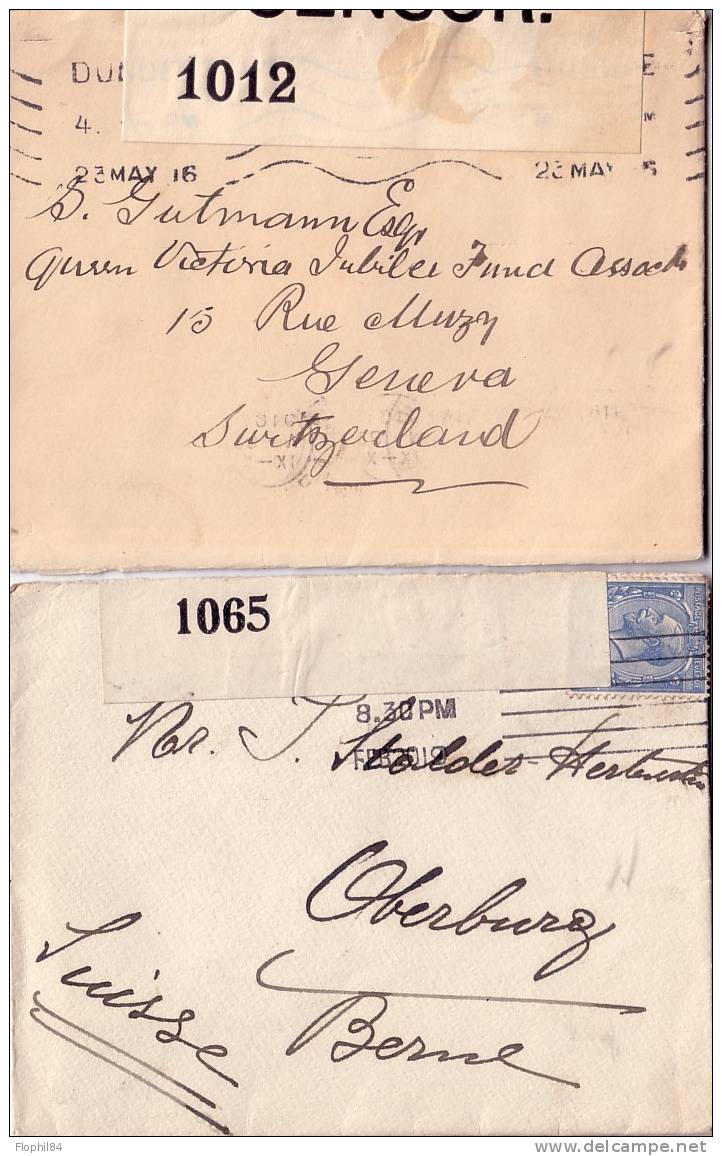 CENSOR.
1012
DU
E
4.
M
23MAY 16
23 MAY
S. Gutmann Esqr
Queen Victoria Jubilee Fund Assoctn
15 Rue Muzy
Geneva
Switzerland
1065
POSTAGE
REVENUE
8.30PM
FEB 20 19
Mr. J. Stalder-
Oberburg
Berne
Suisse
Flophil84
www.delcampe.net